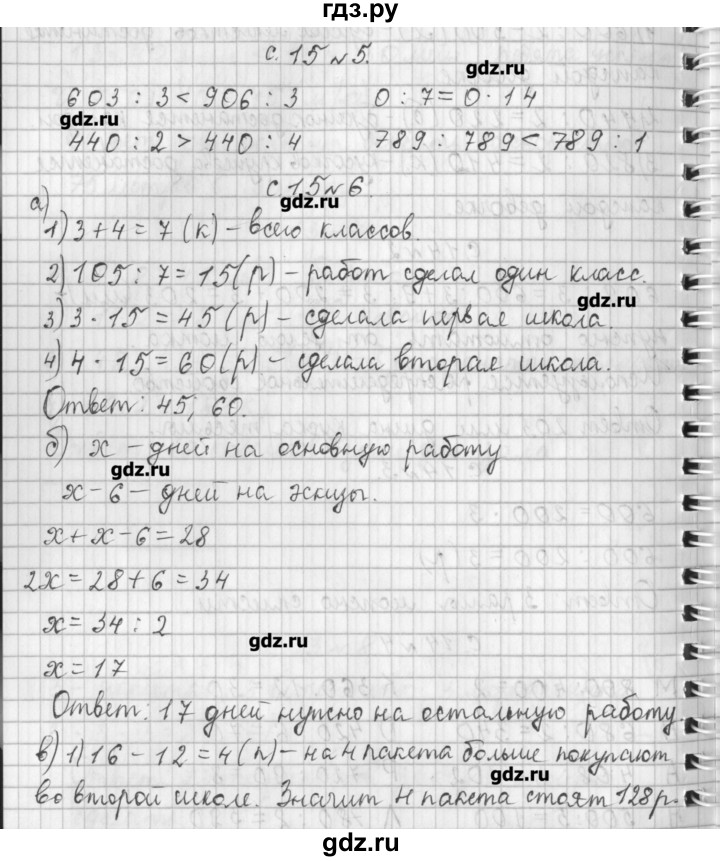 гдз.ру
с. 15 № 5.
gdz.ru
603 : 3 < 906 : 3   0 : 7 = 0 · 14
gdz.ru
440 : 2 > 440 : 4   789 : 789 < 789 : 1
с. 15 № 6.
gdz.ru
а)
1) 3 + 4 = 7 (к) – всего классов.
2) 105 : 7 = 15 (р) – работ сделал один класс.
gdz.ru
3) 3 · 15 = 45 (р) – сделала первая школа.
4) 4 · 15 = 60 (р) – сделала вторая школа.
Ответ: 45; 60.
б) х – дней на основную работу
gdz.ru
х – 6 – дней на эскизы.
х + х – 6 = 28
2х = 28 + 6 = 34
х = 34 : 2
gdz.ru
х = 17
Ответ: 17 дней нужно на остальную работу.
в) 1) 16 – 12 = 4 (п) – на 4 пакета больше покупают
gdz.ru
во второй школе. Значит 4 пакета стоят 128 р.
gdz.ru